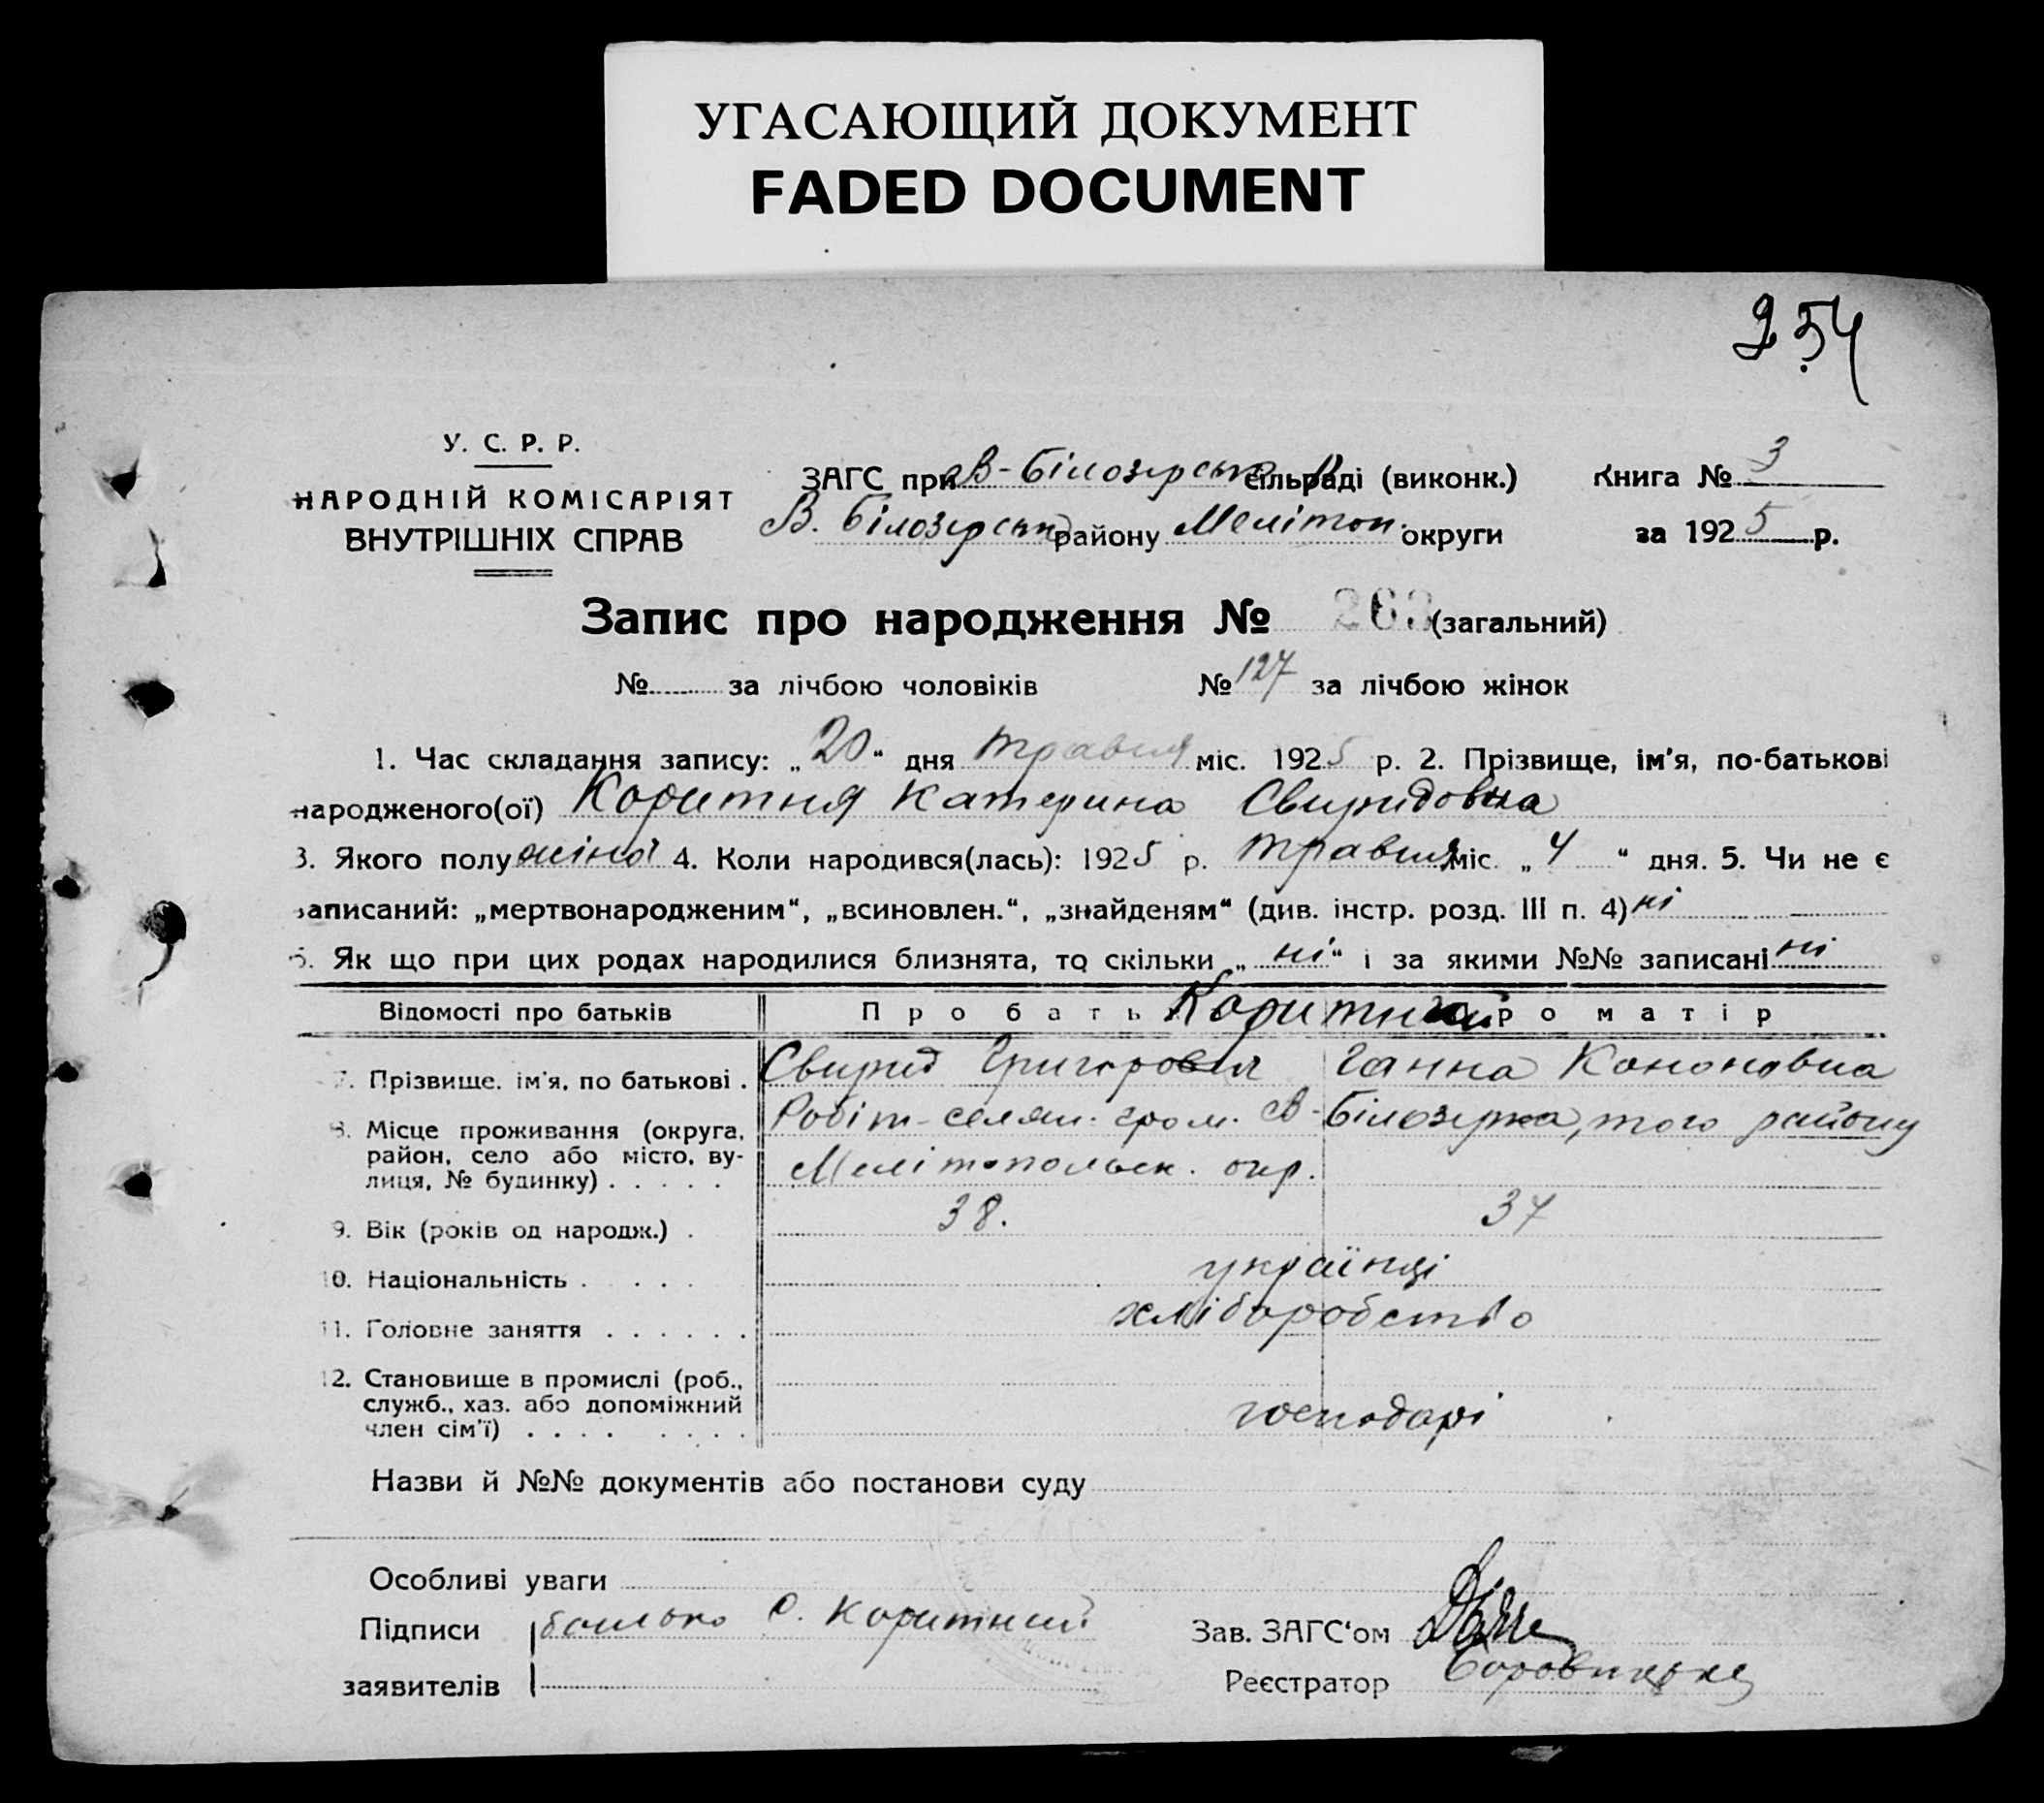 УГАСАЮЩИЙ ДОКУМЕНТ
FADED DOCUMENT
254
У. С. Р. Р.
НАРОДНІЙ КОМІСАРІЯТ
ВНУТРІШНІХ СПРАВ
ЗАГС при В-Білозерськ сільраді (виконк.) Книга № 3
В. Білозерськ району Мелітоп. округи за 1925 р.
Запис про народження № 263 (загальний)
№ за лічбою чоловіків № 127 за лічбою жінок
1. Час складання запису: „20“ дня травня міс. 1925 р. 2. Прізвище, ім'я, по-батькові
народженого(ої) Коритня Катерина Свиридовна
3. Якого полу жіної 4. Коли народився(лась): 1925 р. травня міс. „4“ дня. 5. Чи не є
записаний: „мертвонародженим“, „всиновлен.“, „знайденям“ (див. інстр. розд. III п. 4) ні
6. Як що при цих родах народилися близнята, то скільки „ні“ і за якими №№ записані ні
Відомості про батьків Про бать Коритний про матір
7. Прізвище, ім'я, по батькові . Свирид Григоровіч Ганна Кононовна
8. Місце проживання (округа, Робіт-селян. гром. В-Білозерка, того району
район, село або місто, ву- Мелітопольск. окр.
лиця, № будинку) . . . . .
9. Вік (років од народж.) . 38. 37
10. Національність . . . . українці
11. Головне заняття . . . . . . хліборобство
12. Становище в промислі (роб.,
служб., хаз. або допоміжний господарі
член сім'ї) . . . . . . . .
Назви й №№ документів або постанови суду
Особливі уваги
Підписи батько С. Коритний Зав. ЗАГС'ом
заявителів Реєстратор